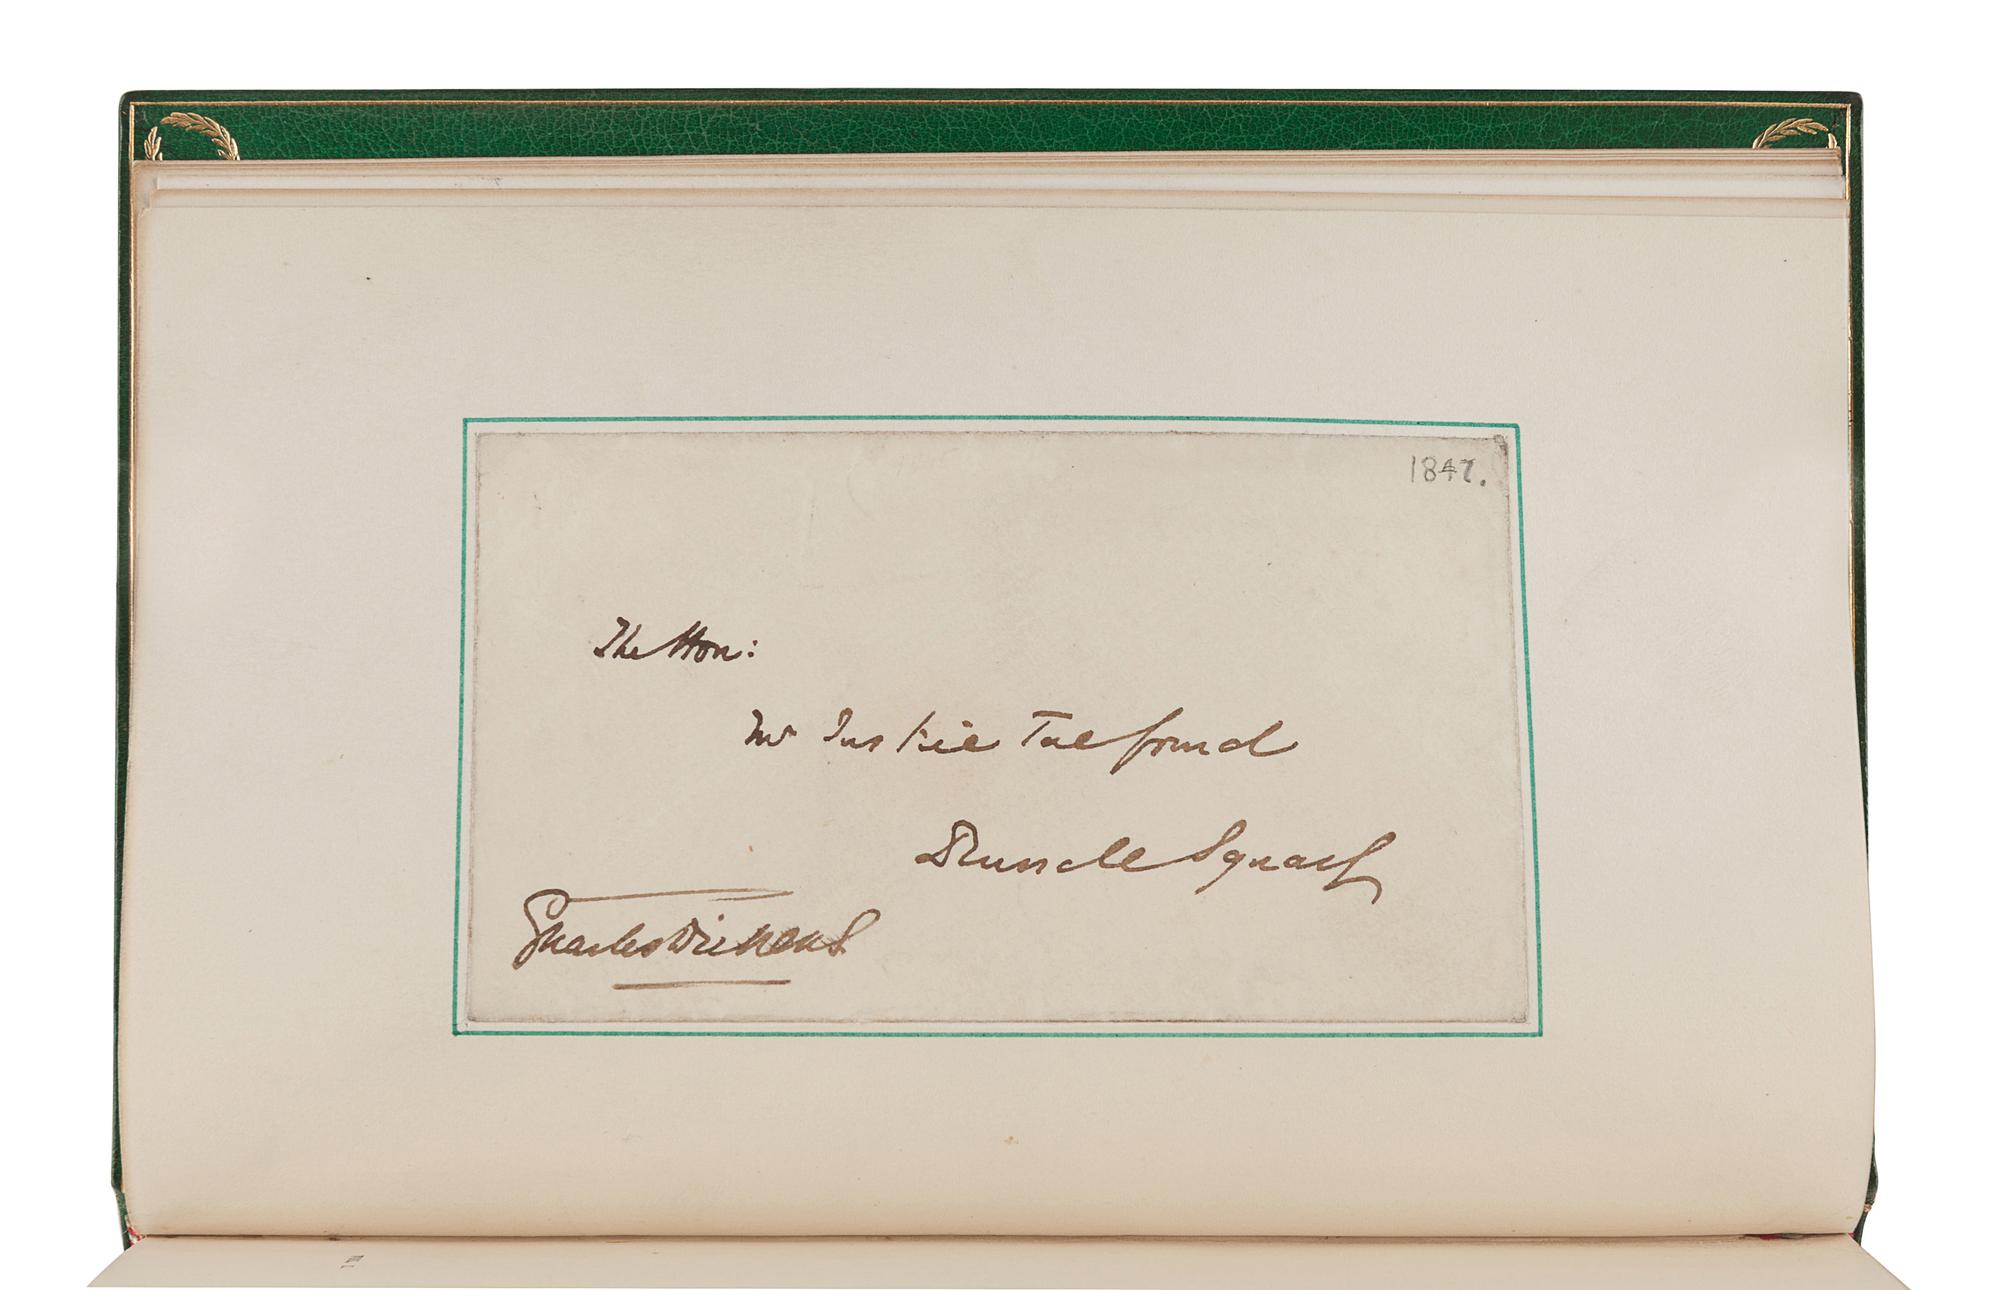 1847.
The Hon:
Mr Justice Talfourd
Russell Square
Charles Dickens